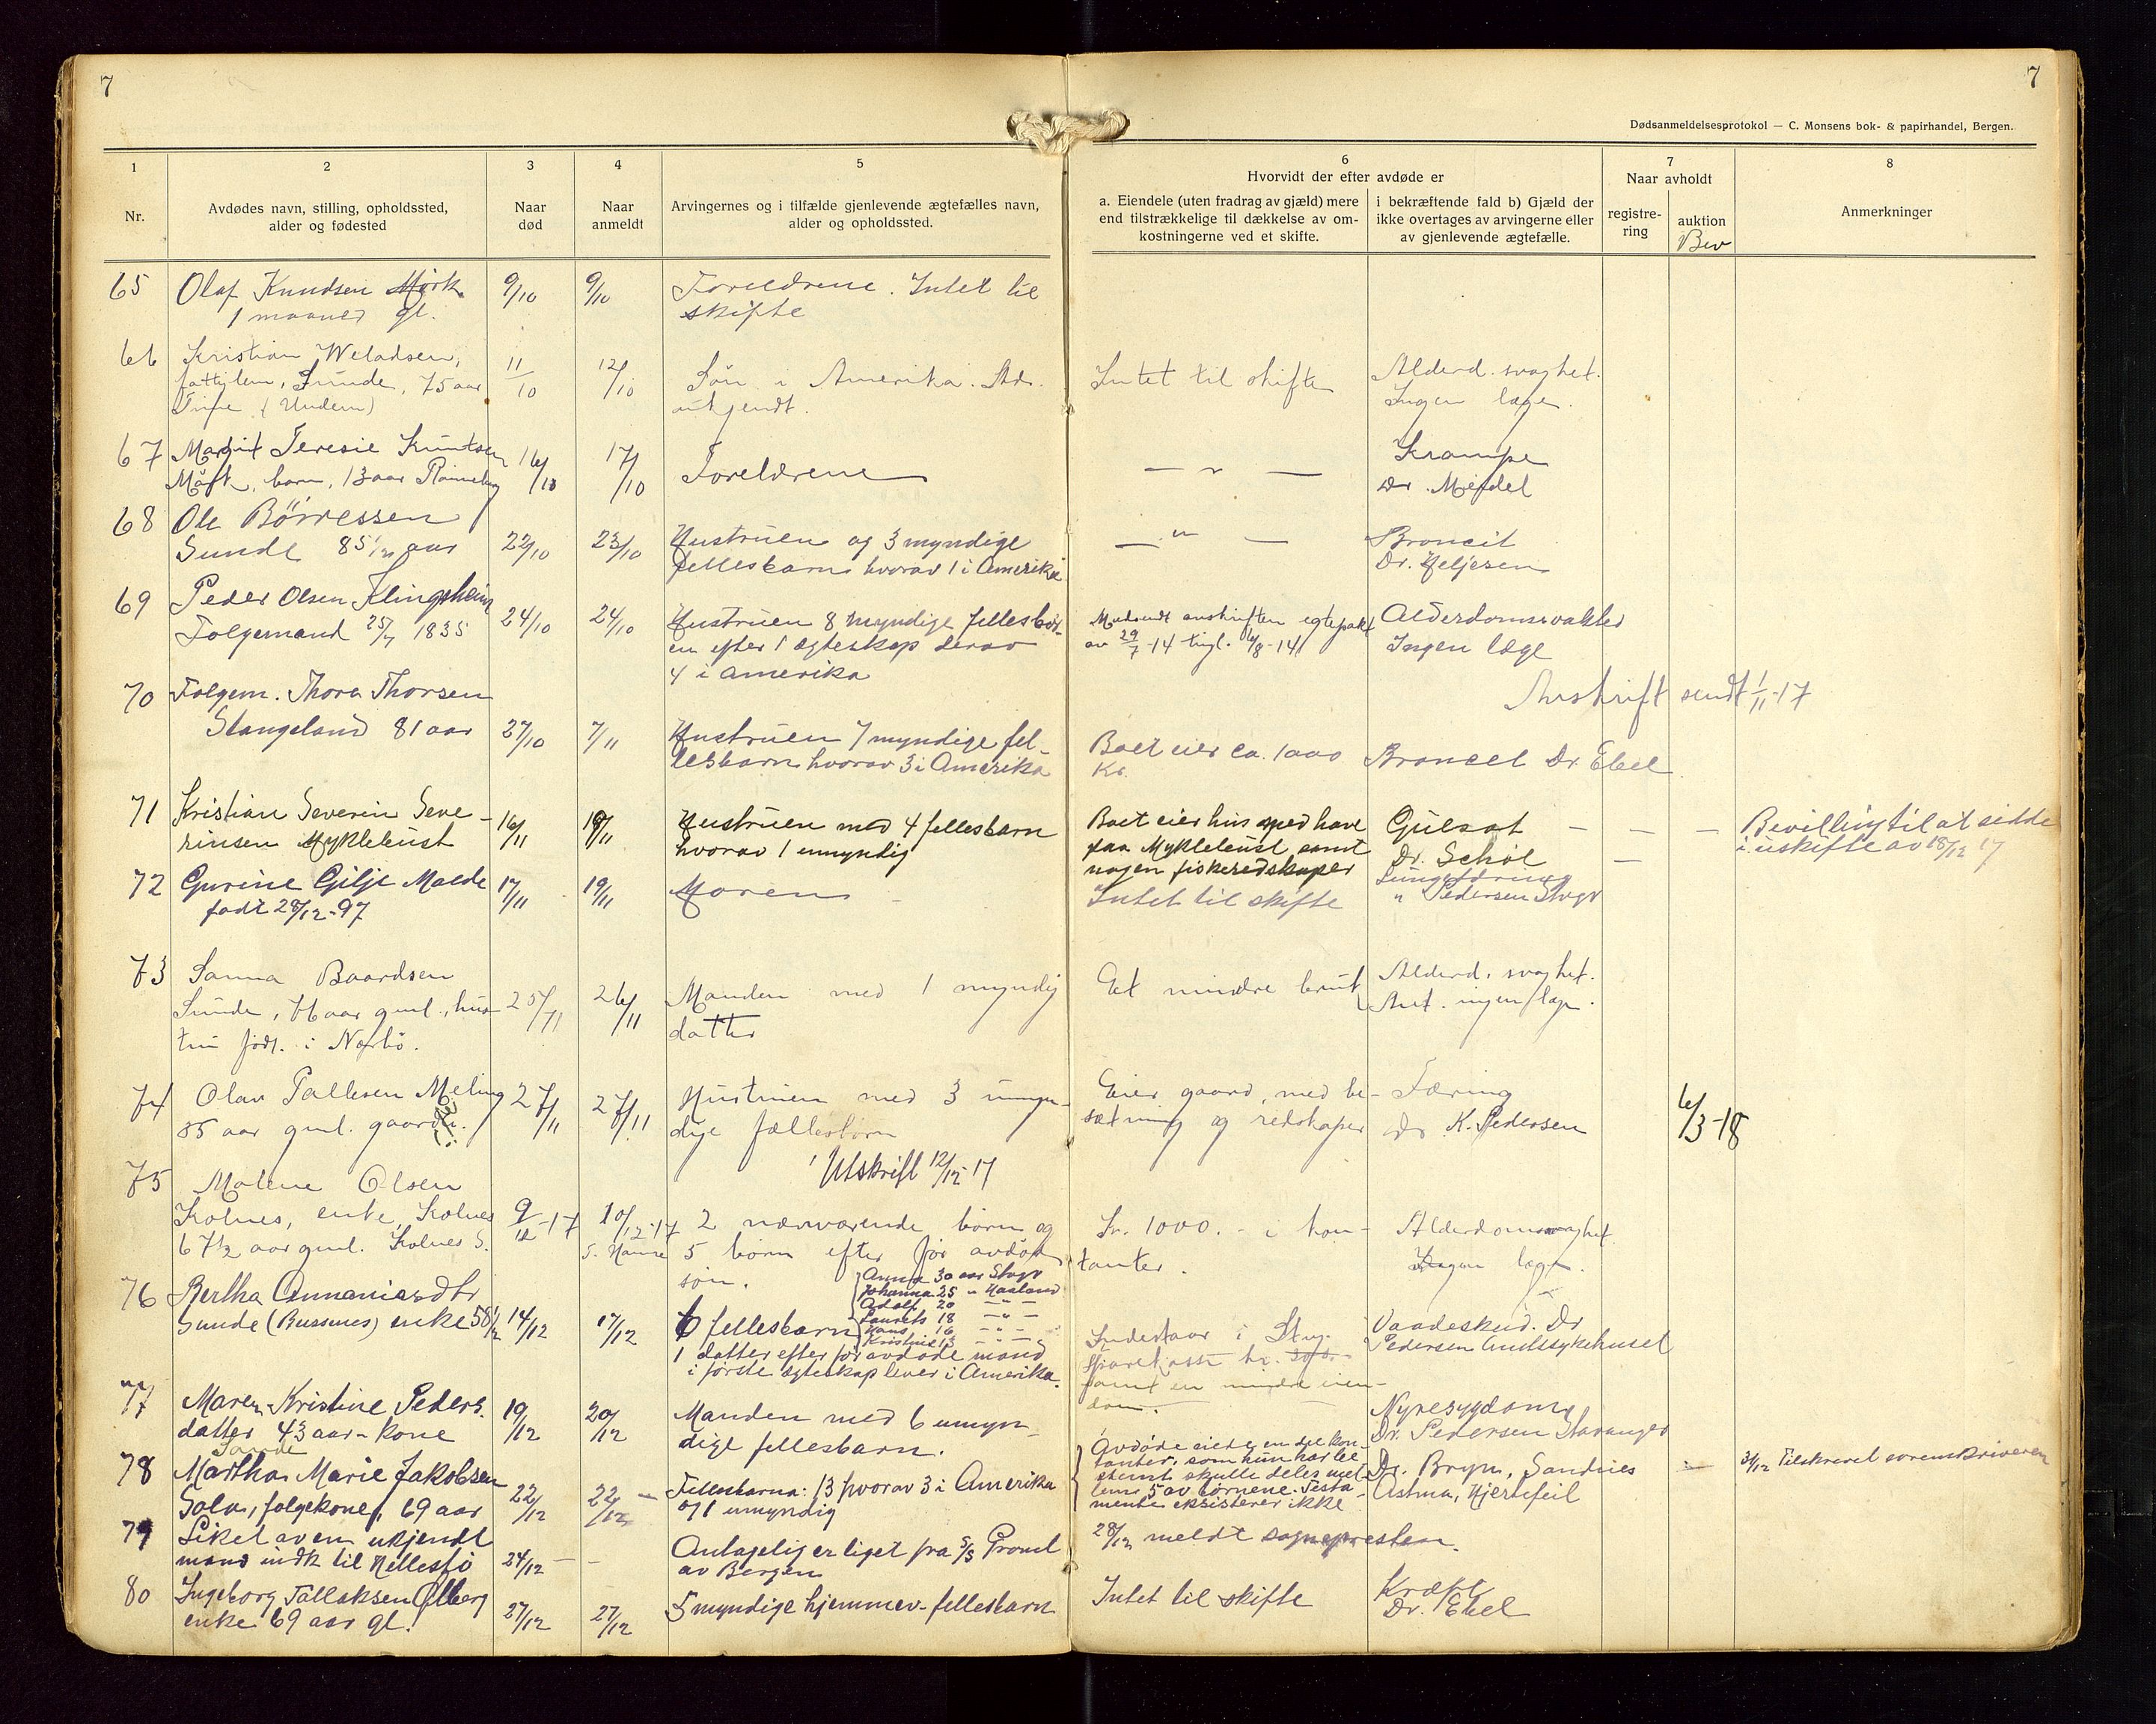 7
7
Dødsanmeldelsesprotokol — C. Monsens bok- & papirhandel, Bergen.
1
2
3
4
5
6
7
8
Nr.
Avdødes navn, stilling, opholdssted,
alder og fødested
Naar
død
Naar
anmeldt
Arvingernes og i tilfælde gjenlevende ægtefælles navn,
alder og opholdssted.
Hvorvidt der efter avdøde er
a. Eiendele (uten fradrag av gjæld) mere
end tilstrækkelige til dækkelse av om-
kostningerne ved et skifte.
i bekræftende fald b) Gjæld der
ikke overtages av arvingerne eller
av gjenlevende ægtefælle.
Naar avholdt
registre-
ring
auktion
Bev
Anmerkninger
65 Olaf Knudsen Mørk 9/10 9/10 Foreldrene. Intet til
1 maaned gl. skifte
66 Kristian 11/10 12/10 Søn i Amerika. Adr. Intet til skifte Alderd. svaghet.
Sunde, 75 aar ukjendt. Ingen læge.
67 Margit Teresie Knutsen 16/10 17/10 Foreldrene — " — Krampe
barn, 13 aar Dr. Mejdel
68 Ole Børressen
Sunde 85 1/2 aar 22/10 23/10 Hustruen og 3 myndige — " — Broncit
fellesbarn hvorav 1 i Amerika Dr. Heljesen
69 Peder Olsen Klingsheim
Folgemand 25/7 1835 24/10 24/10 Hustruen 8 myndige fellesbør- egtepakt Alderdomsvakhed
en efter 1 egteskap derav av 29/7-14 tingl. 4/8-14 Ingen læge
4 i Amerika
70 Folgem. Thore Thorsen Avskrift sendt 1/11-17
Stangeland 81 aar 27/10 7/11 Hustruen 7 myndige fel-
lesbarn hvorav 3 i Amerika Boet eier ca. 1000 Broncet Dr. Ebel
Kr.
71 Kristian Severin Seve- 16/11 19/11 Hustruen med 4 fellesbarn Boet eier hus med have Gulsot — — — Bevilling til at sidde
rinsen Myklebust hvorav 1 umyndig paa Myklebust samt Dr. Schøl — i uskifte av 18/12 17
nogen fiskeredskaper
72 Gurine Gilje Malde 17/11 19/11 Moren Intet til skifte " Pedersen Stvgr
født 28/12-97
73 Sanna Baardsen
Sunde, 76 aar gml., hus- 25/11 26/11 Manden med 1 myndig Et mindre bruk Alderd. svaghet.
tru født i Nærbø. datter Ant. ingen læge.
74 Olav Pallesen Meling 27/11 27/11 Hustruen med 3 umyn- Eier gaard, med be- Tæring
35 aar gml. gaardbr. dige fællesbørn sætning og redskaper Dr K. Pedersen 6/3-18
Utskrift 12/12-17
75 Malene Olsen
Kolnes, enke, Kolnes 9/12-17 10/12-17 2 nærværende børn og Kr. 1000.- i kon- Alderdomssvaghet.
67 1/2 aar gml. Kolnes S. 5 børn efter før avdød tanter. Ingen læge.
søn.
76 Bertha Annaniasdtr
Sunde (Russnes) enke 58 1/2 14/12 17/12 6 fellesbarn
Anna 30 aar Stvgr
Johanna 25 " Haaland
Adolf 20 — " —
Laurits 18 — " —
Hans 16 — " —
Kristine 13 — " —
1 datter efter før avdøde mand
i første ægteskap lever i Amerika.
Indestaar i Stvg.
Sparekasse kr.
samt en mindre eien-
dom.
Vaadeskud. Dr
Pedersen Amtssykehuset
77 Maren Kristine Peders. 19/12 20/12 Manden med 6 umyn- Nyresygdom
datter 43 aar - kone dige fellesbarn. Dr. Pedersen Stavanger
78 Martha Marie Jakobsen
Sola, folgekone, 69 aar 22/12 22/12 Fellesbarna: 13 hvorav 3 i Amerika
og 1 umyndig
Avdøde eiede en del kon-
tanter, som hun har be
stemt skulle deles mel-
lem 5 av børnene. Testa-
mente eksisterer ikke
Dr. Bryn, Sandnes
Astma, Hjertefeil
31/12 Tilskrevet sorenskriveren
79 Liket av en ukjendt
mand indk til Hellestø 24/12 — — Antagelig er liget fra S/S
av Bergen
28/12 meldt sognepresten.
80 Ingeborg Tallaksen 27/12 27/12 5 myndige hjemmev. fellesbarn Intet til skifte Kræft
enke 69 aar gl. Dr. Ebel